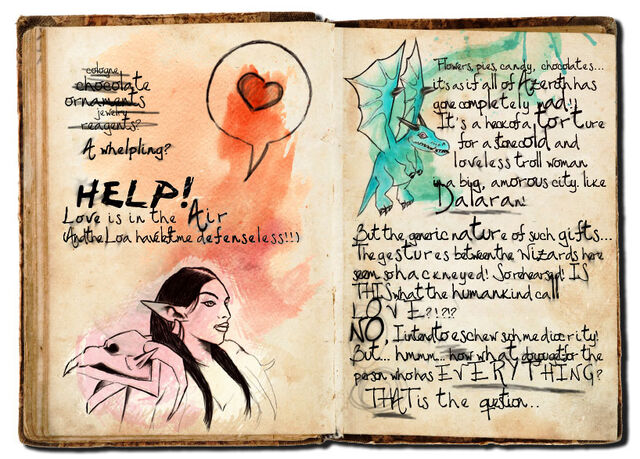 cologne
chocolate
ornaments
jewelry
reagents?
A whelpling?
HELP!
Love is in the Air
(And the Loa have left me defenseless!!!)
Flowers, pies, candy, chocolates...
it's as if all of Azeroth has
gone completely mad!!
It's a heck of a torture
for a stone cold and
loveless troll woman
in a big, amorous city. like
Dalaran!
But the generic nature of such gifts...
The gestures between the Wizards here
seem so hackneyed! So rehearsed! IS
THIS what the humankind call
LOVE?!?!?
NO, I intend to eschew such mediocrity!
But... hmmm... how what do you get for the
person who has EVERYTHING?
THAT is the question...